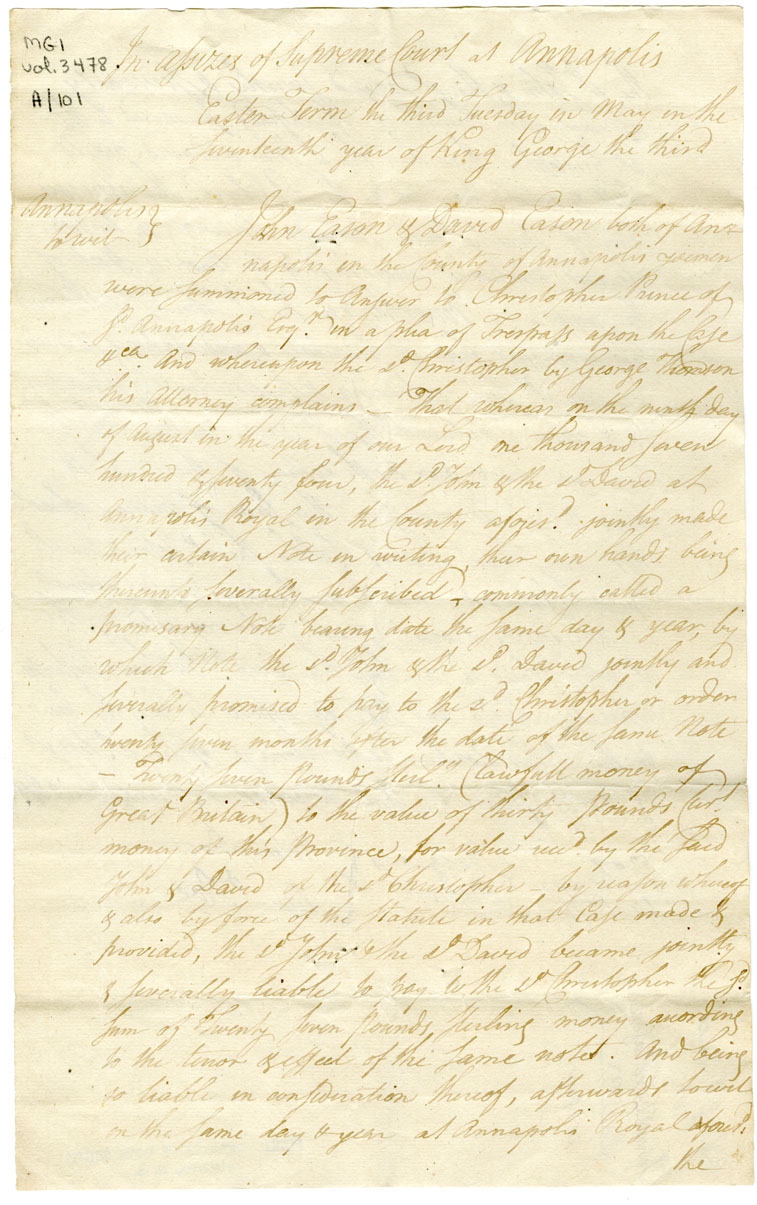 MG1
Vol. 3478
A/101
In Assizes of Supreme Court at Annapolis
Easter Term the third Tuesday in May in the
seventeenth year of King George the third
Annapolis }
to wit
John Eason & David Eason both of An=
napolis in the County of Annapolis yeomen
were summoned to Answer to Christopher Prince of
sd. Annapolis Esqr. in a plea of Trespass upon the Case
&ca. And whereupon the sd. Christopher by George Thomson
his Attorney complains – That whereas on the ninth day
of August in the year of our Lord one thousand seven
hundred & seventy four, the sd. John & the sd. David at
Annapolis Royal in the County aforesd. jointly made
their certain Note in writing, their own hands being
thereunto severally subscribed, commonly called a
promisary Note bearing date the same day & year, by
which Note the sd. John & the sd. David jointly and
severally promised to pay to the sd. Christopher or order
twenty seven months after the date of the same Note
– Twenty seven Pounds Sterl. (Lawfull money of
Great Britain) to the value of thirty Pounds Curt.
money of this Province, for value recd. by the said
John & David of the sd. Christopher – by reason whereof
& also by force of the Statute in that Case made &
provided, the sd. John & the sd. David became jointly
& severally liable to pay to the sd. Christopher the sd.
sum of Twenty seven Pounds sterling money according
to the tenor & effect of the same note. And being
so liable in consideration thereof, afterwards to wit
on the same day & year at Annapolis Royal aforesd.
the